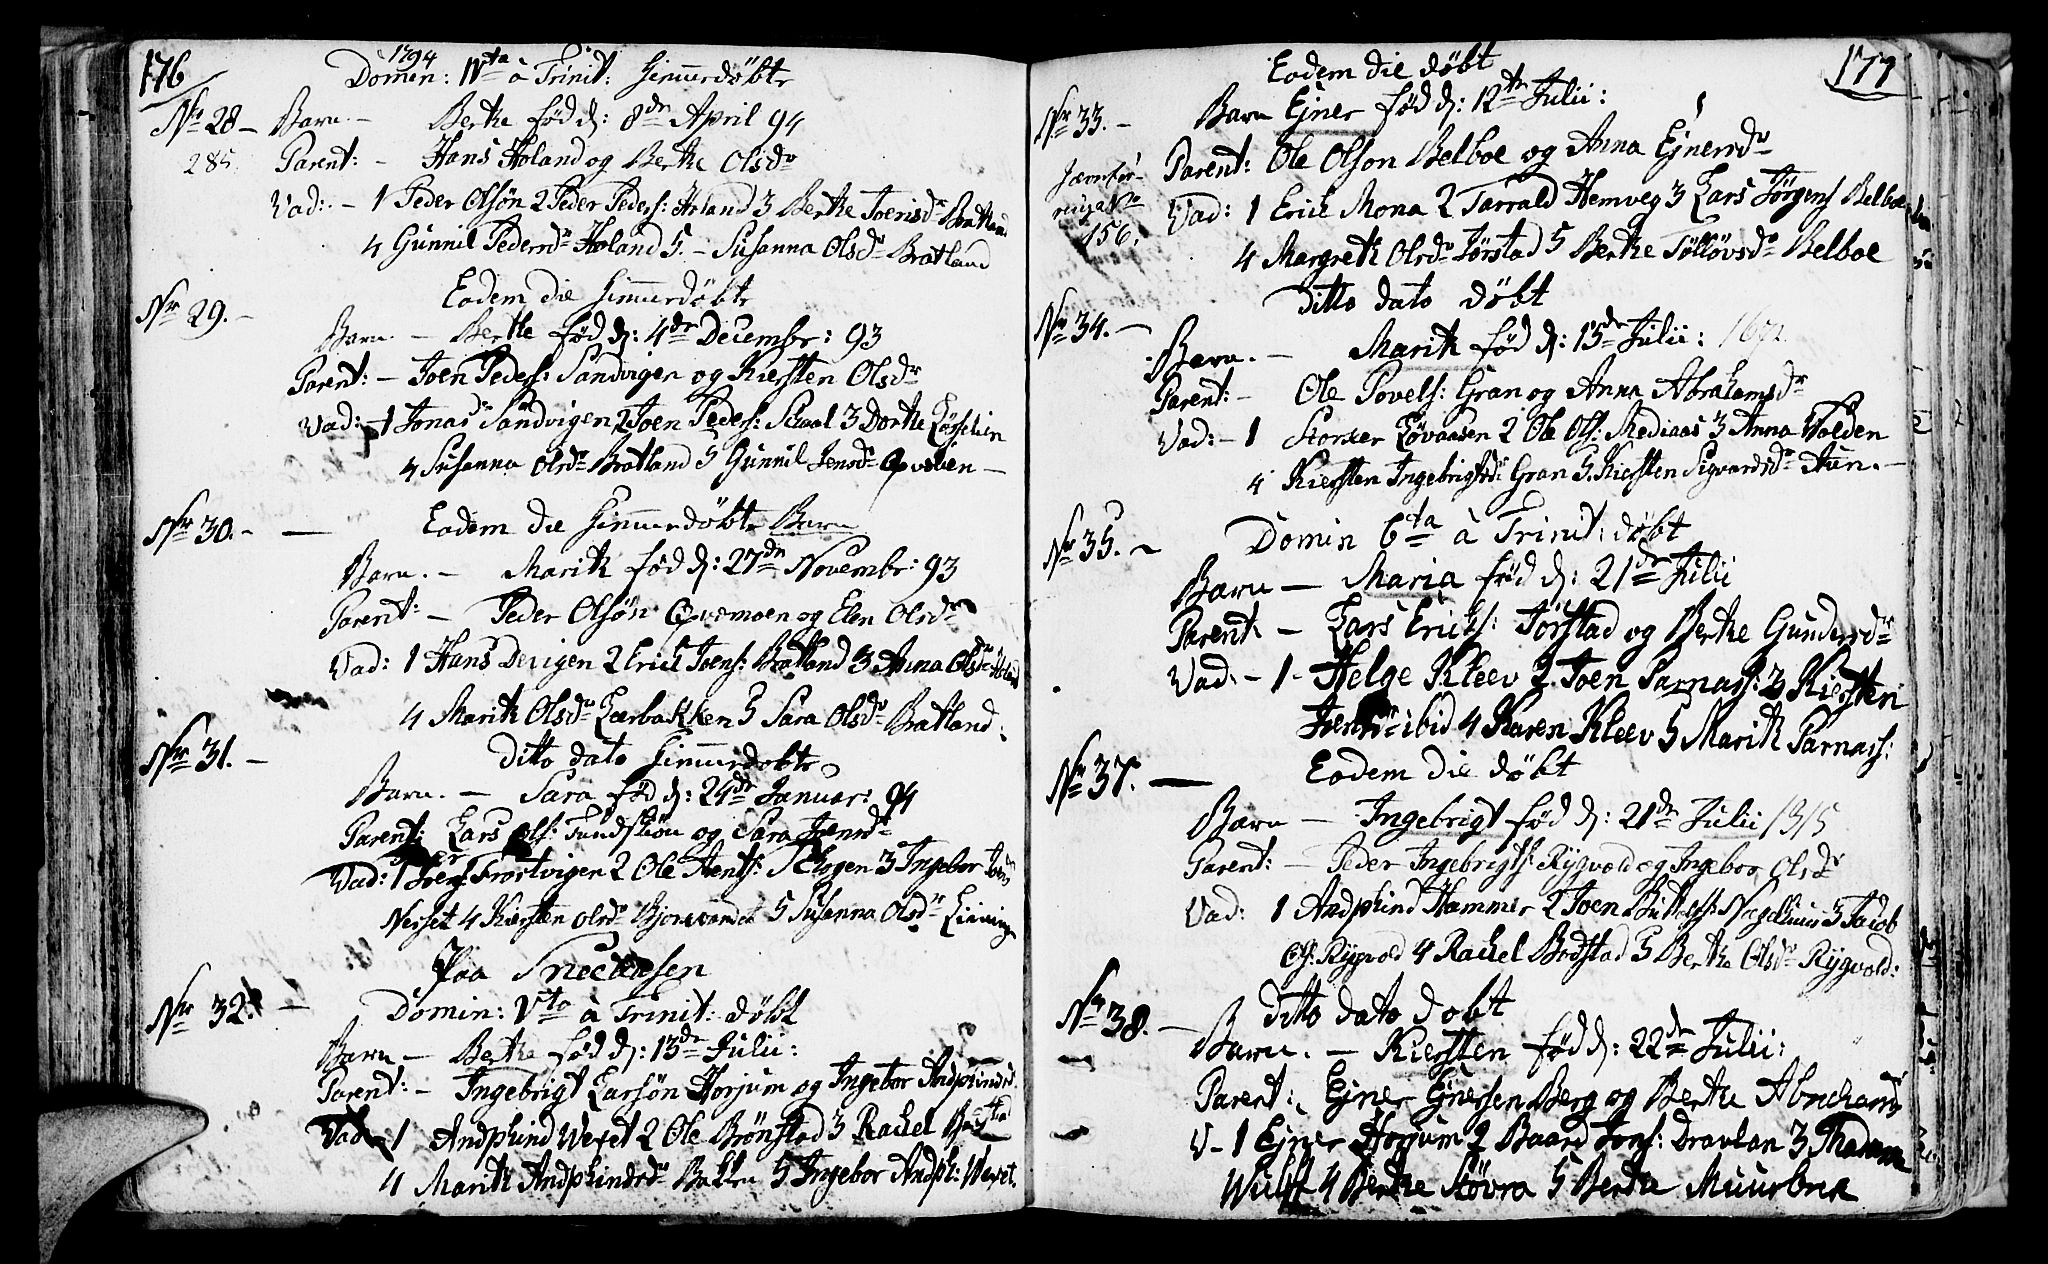 176
1794
Domin: IVta à Trinit: himmerdøbt
Nr 28 - Barn. - Berte fød d: 8de April 94
285 Parent: - Hans Holand og Berte Olsdr
Vad: - 1 Peder Olsøn 2 Peder Peders: Holand 3 Berte Joensdr Bratland
4 Gunnil Pedersdr Holand 5. - Susanna Olsdr Bratland
Eodem die himmerdøbt
Nr 29. -
Barn. - Berthe fød d: 4de Decembr: 93
Parent: - Joen Peders: Sandvigen og Kiersten Olsdr
Vad: - 1 Jonas Sandvigen 2 Joen Peders: Skaal 3 Dorthe
4 Susanna Olsdr Bratland 5 Gunnil Jensdr Qvelien -
Nr 30. - - Eodem die himmerdøbt Barn
Barn. - Marit fød d: 27de Novembr: 93
Parent: - Peder Olsøn Qvemoen og Elen Olsdr
Vad: 1 Hans Devigen 2 Erich Joens: Bratland 3 Anna Olsdr Holand
4 Marit Olsdr Lærbakken 5 Sara Olsdr Bratland:
Nr 31. - Ditto dato himmerdøbt
Barn. - Sara fød d: 24de Januar: 94
Parent: Lars Ols: og Sara Joensdr
Vad: 1 Joen Trortvigen 2 Ole Arents: 3 Ingebor
Nerset 4 Kiersten Olsdr 5 Susanna Olsdr
Paa Sneeaasen
Nr 32. - Domin: Vta à Trinit: døbt
Barn - Berte fød d: 13de Julii:
Parent: - Ingebrigt Larsøn Horjum og Ingebor Andphindsd.
Vad 1 Andphind Weset 2 Ole Brønstad 3 Rachel
4 Marit Andphindsdr Bakken 5 Ingebor Andph: Weset.
177
Eodem die døbt
Nr 33. - Barn Ejner fød d: 12te Julii:
Parent: Ole Olson Belboe og Anna Ejnersdr
156.
Vad: 1 Erich Mona 2 Tarrald Hemveg 3 Lars Jørgens Belboe
4 Margreth Olsdr Jørstad 5 Berte Tølløvsdr Belboe
Ditto dato døbt
Nr 34. -
Barn. - Marit fød d: 15de Julii: 1692
Parent: - Ole Povels: Gran og Anna Abrahamsdr
Vad: - 1 Storker Løvaasen 2 Ole Ols: Mediaas 3 Anna Wolden
4 Kiersten Ingebrigtsd: Gran 5. Kiersten Sigvardsdr Aun. -
Nr 35. - Domin 6ta à Trinit: døbt
Barn - Maria fød d: 21de Julii
Parent: - Lars Erichs: Jørstad og Berte Gundersdr
Vad. - 1 - Helge Kleev 2. Joen Parnass: 3 Kiersten
ibid 4 Karen Kleev 5 Marit Parnass:
Nr 37. - Eodem die døbt
Barn - Ingebrigt fød d: 21de Julii 1315
Parent: - Peder Ingebrigts: Rygvold og Ingebor Olsdr
Vad: 1 Andphind Hammer 2 Joen 3 Jacob
Ols: Rygvold 4 Rachel Bodstad 5 Berthe Olsdr Rygvold:
Nr 38. - Ditto dato døbt
Barn. - Kiersten fød d: 22de Julii:
Parent: Ejner Ejnersen Berg og Berte Abrahams
V - 1 Ejner Horjum 2 Baard Jons: Dravlan 3 Madame
Wulff 4 Berthe Støvra 5 Berthe Muurbrek